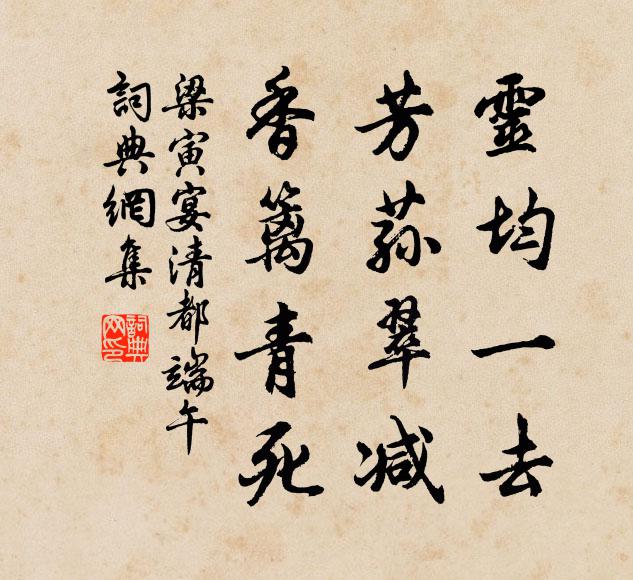 靈均一去
芳蓀翠減
香篱青死
梁寅宴清都端午
詞典網集
詞典網印